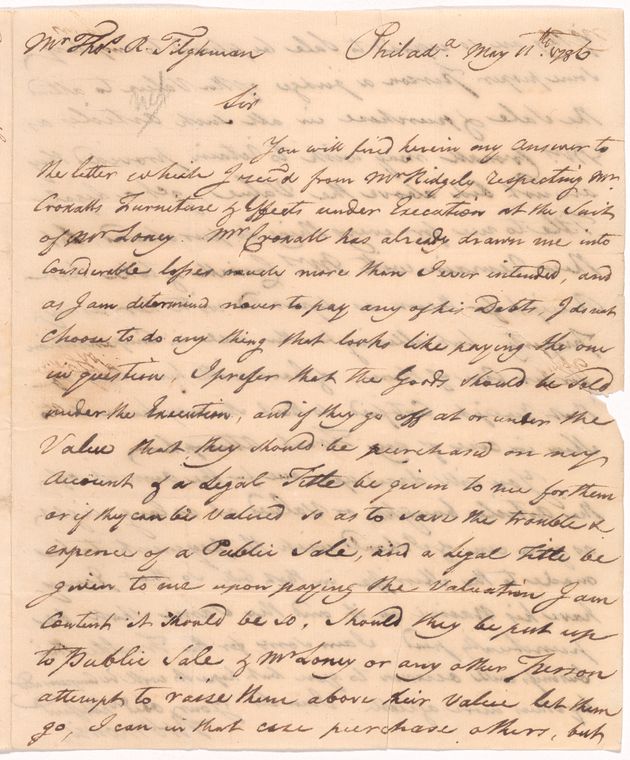 Mr Thos. R. Tilghman Philada. May 11th. 1786
Sir
You will find herein my answer to
the letter which I reced from Mr Ridgely respecting Mr
Croxalls Furniture & Effects under Execution at the Suit
of Mr Loney. Mr Croxall has already drawn me into
Considerable losses much more than I ever intended, and
as I am determind never to pay any of his Debts, I do not
choose to do any thing that looks like paying the one
in question, I prefer that the Goods should be sold
under the Execution, and if they go off at or under the
Value that they should be purchased on my
account & a Legal Title be given to me for them
or if they can be Valued so as to save the trouble &
expence of a Public Sale, and a Legal Title be
given to me upon paying the Valuation I am
Content it should be so. Should they be put up
to Public Sale & Mr Loney or any other Person
attempt to raise them above their Value let them
go, I can in that case purchase others, but